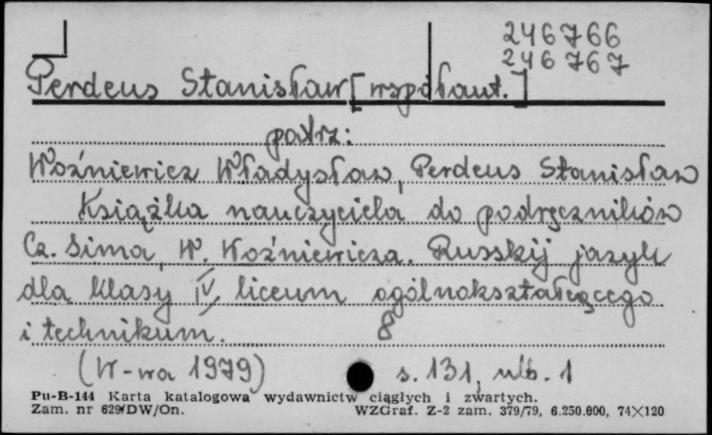 246766
246767
Perdeus Stanisław [współaut.]
patrz:
Woźniewicz Władysław, Perdeus Stanisław
Książka nauczyciela do podręczników
Cz. Sima, W. Woźniewicza. Russkij jazyk
dla klasy IV liceum ogólnokształcącego
i technikum. 8
(W-wa 1979) s. 131, nlb. 1
Pu-B-144 Karta katalogowa wydawnictw ciągłych i zwartych.
Zam. nr 629/DW/On. WZGraf. Z-2 zam. 379/79, 6.250.000, 74×120